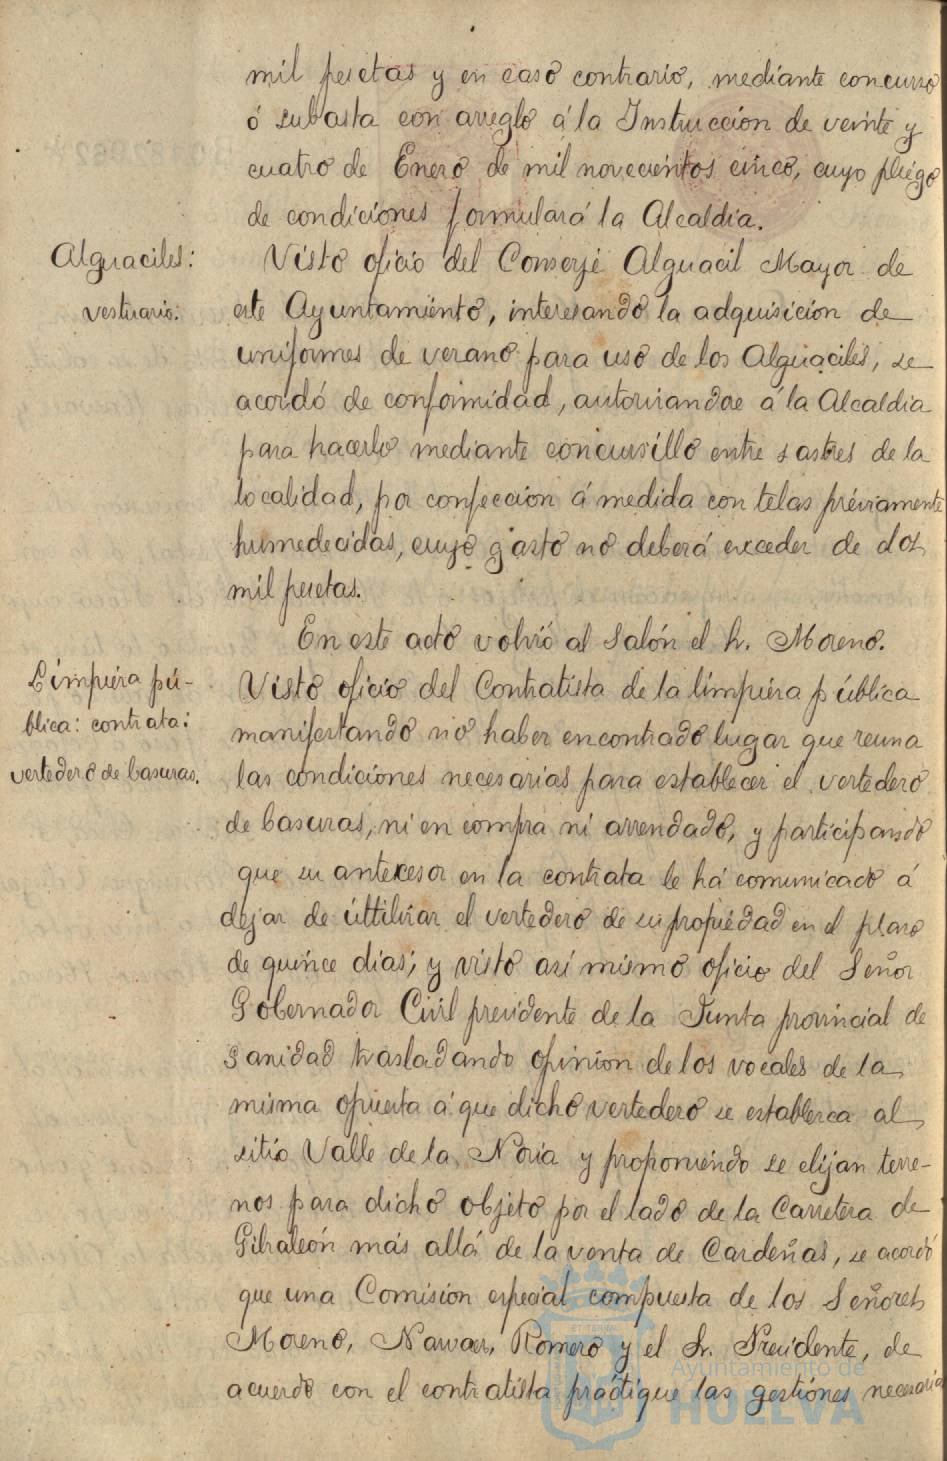 mil pesetas y en caso contrario, mediante concurso
ó subasta con arreglo á la Instruccion de veinte y
cuatro de Enero de mil novecientos cinco, cuyo pliégo
de condiciones formulará la Alcaldia.
Alguaciles:
vestuario:
Visto oficio del Conserje Alguacil Mayor de
este Ayuntamiento, interesando la adquisicion de
uniformes de verano para uso de los Alguaciles, se
acordó de conformidad, autorizandose á la Alcaldia
para hacerlo mediante concursillo entre sastres de la
localidad, por confeccion á medida con telas préviamente
humedecidas, cuyo gasto no deberá exceder de dos
mil pesetas.
En este acto volvió al salón el Sr. Moreno.
Limpieza pú-
blica: contrata:
vertedero de basuras.
Visto oficio del Contratista de la limpieza pública
manifestando no haber encontrado lugar que reuna
las condiciones necesarias para establecer el vertedero
de basuras, ni en compra ni arrendado, y participando
que su antecesor en la contrata le há comunicado á
dejar de úttilizar el vertedero de su propiedad en el plazo
de quince dias; y visto asi mismo oficio del Señor
Gobernador Civil presidente de la Junta provincial de
Sanidad trasladando opinion de los vocales de la
misma opuesta á que dicho vertedero se establezca al
sitio Valle de la Noria y proponiendo se elijan terre-
nos para dicho objeto por el lado de la Carretera de
Gibraleón más allá de la venta de Cardeñas, se acordó
que una Comision especial compuesta de los Señores
Moreno, Narvaez, Romero y el Sr. Presidente, de
acuerdo con el contratista práctique las gestiones necesaria
Ayuntamiento de
HUELVA